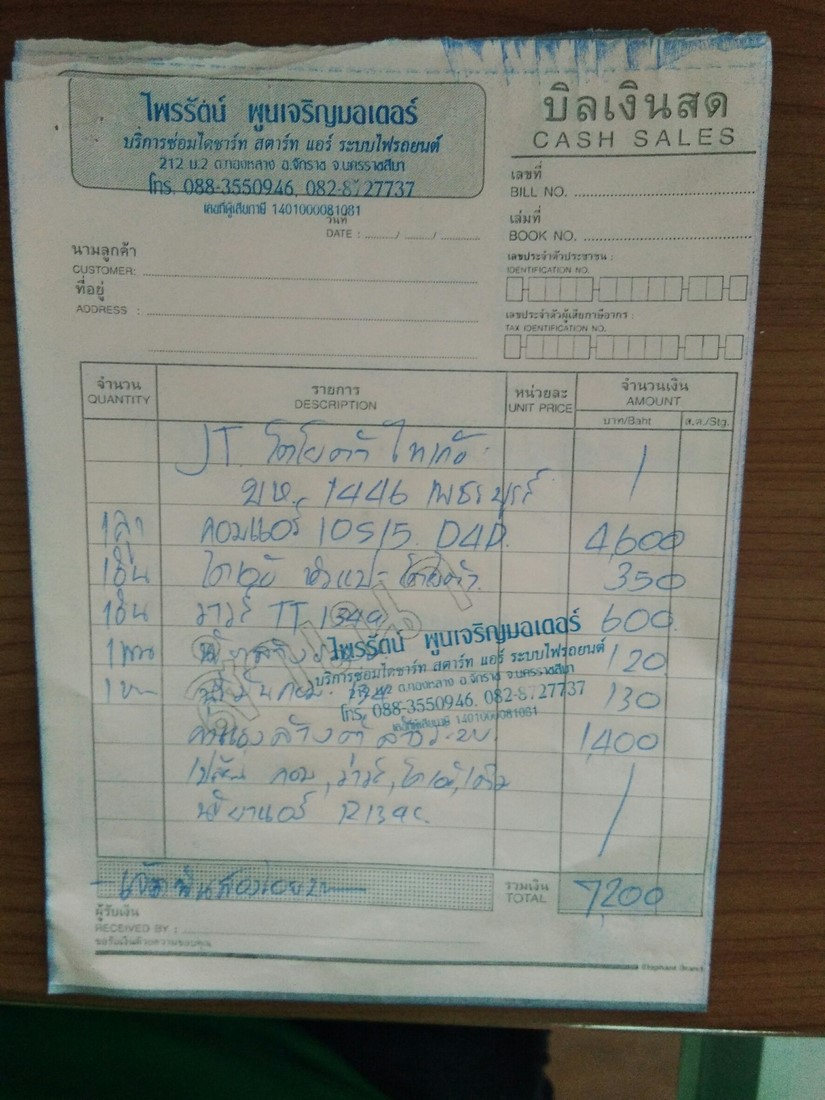 ไพรรัตน์ พูนเจริญมอเตอร์
บริการซ่อมไดชาร์ท สตาร์ท แอร์ ระบบไฟรถยนต์
212 ม.2 ต.ทองหลาง อ.จักราช จ.นครราชสีมา
โทร. 088-3550946, 082-8727737
เลขที่ผู้เสียภาษี 1401000081081
บิลเงินสด
CASH SALES
เลขที่
BILL NO.
เล่มที่
BOOK NO.
วันที่
DATE : / /
นามลูกค้า
CUSTOMER:
ที่อยู่
ADDRESS :
เลขประจำตัวประชาชน :
IDENTIFICATION NO.
เลขประจำตัวผู้เสียภาษีอากร :
TAX IDENTIFICATION NO.
จำนวน รายการ หน่วยละ จำนวนเงิน
QUANTITY DESCRIPTION UNIT PRICE AMOUNT
บาท/Baht ส.ต./Stg.
JT. โตโยต้า
1446 เพชรบูรณ์
คอมแอร์ 10S15. D4D. 4,600
350
วาวล์ TT 134a 600
120
130
1,400
R134a.
ไพรรัตน์ พูนเจริญมอเตอร์
บริการซ่อมไดชาร์ท สตาร์ท แอร์ ระบบไฟรถยนต์
212 ม.2 ต.ทองหลาง อ.จักราช จ.นครราชสีมา
โทร. 088-3550946, 082-8727737
เลขที่ผู้เสียภาษี 1401000081081
สำเนา
เจ็ดพันสองร้อยบาท
รวมเงิน
TOTAL 7200
ผู้รับเงิน
RECEIVED BY :
ขอรับเงินด้วยความขอบคุณ
Elephant Brand